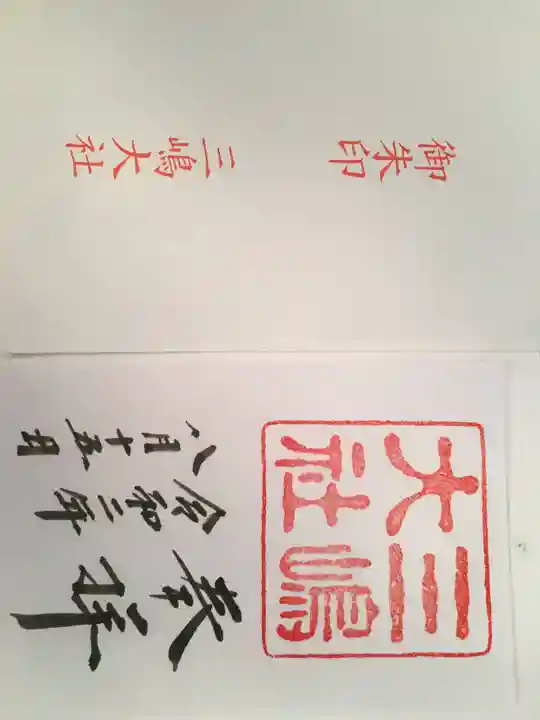 御朱印
三嶋大社
奉拝
三嶋
大社
令和二年
八月十五日